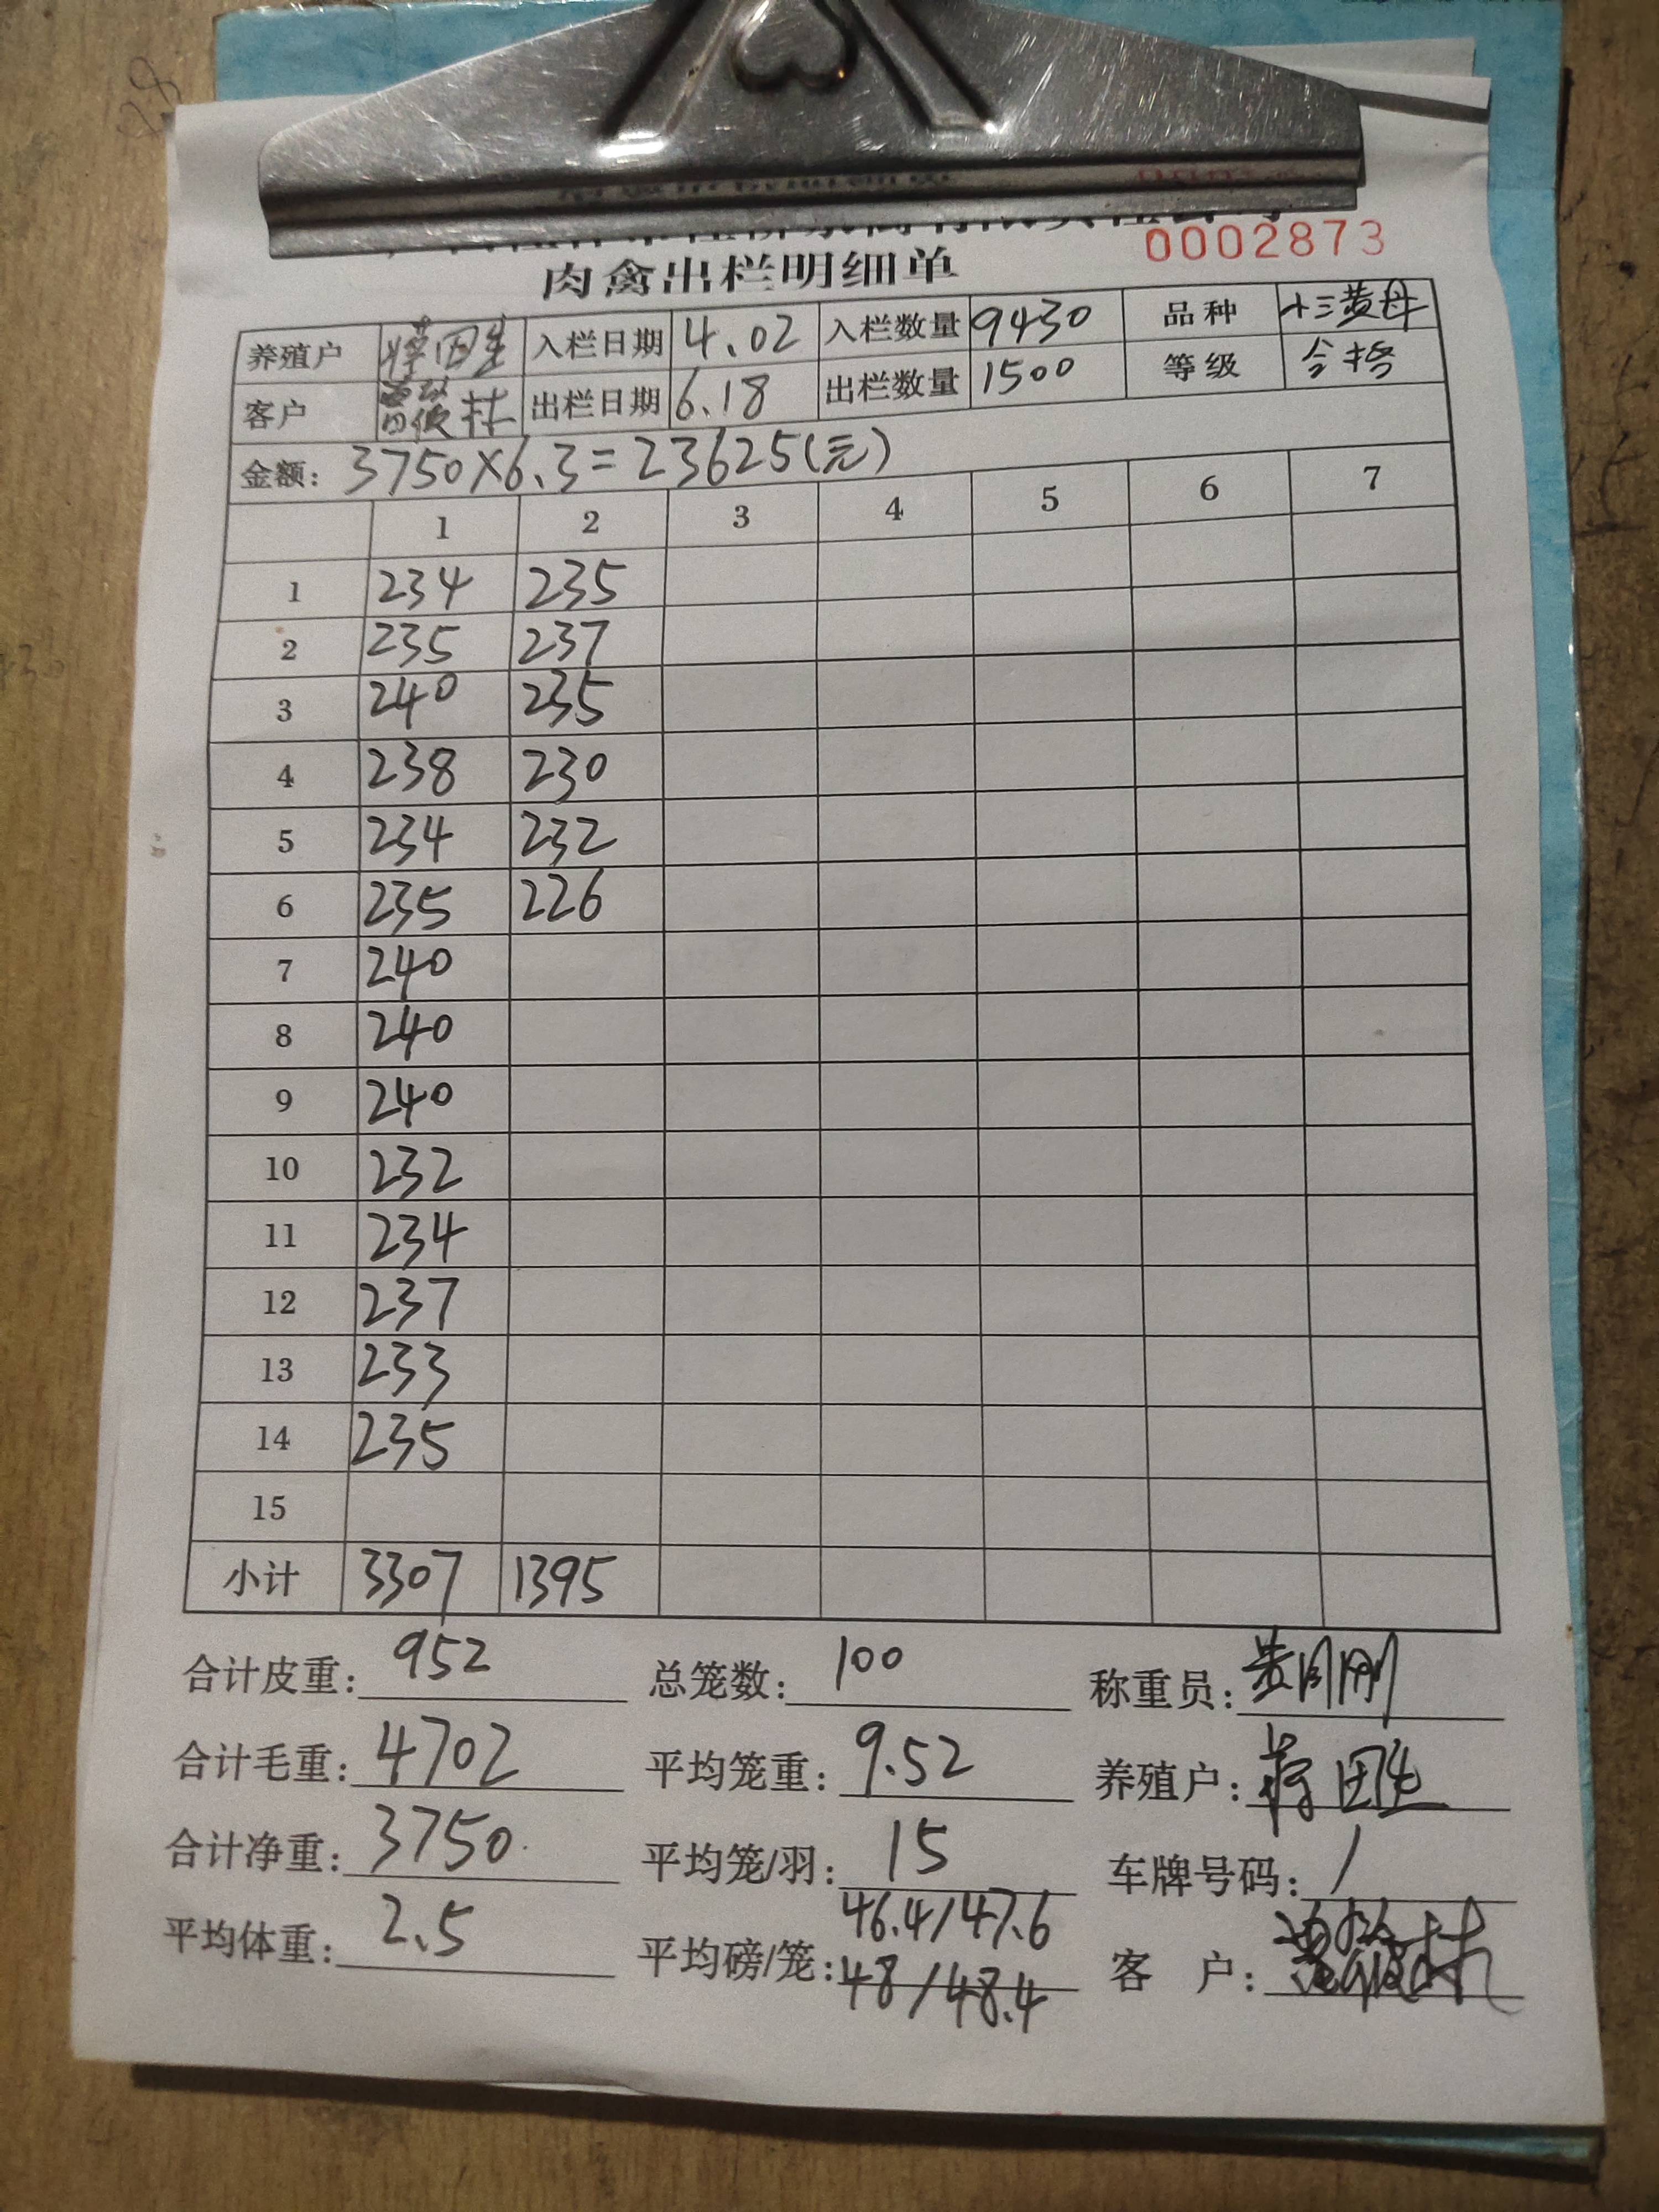 0002873
肉禽出栏明细单
养殖户 入栏日期 4.02 入栏数量 9430 品种 三黄母
客户 出栏日期 6.18 出栏数量 1500 等级 合格
金额: 3750×6.3=23625(元)
1 2 3 4 5 6 7
1 234 235
2 235 237
3 240 235
4 238 230
5 234 232
6 235 226
7 240
8 240
9 240
10 232
11 234
12 237
13 233
14 235
15
小计 3307 1395
合计皮重: 952 总笼数: 100 称重员:
合计毛重: 4702 平均笼重: 9.52 养殖户:
合计净重: 3750 平均笼/羽: 15 车牌号码: /
平均体重: 2.5 平均磅/笼: 46.4/47.6 客户:
48/48.4